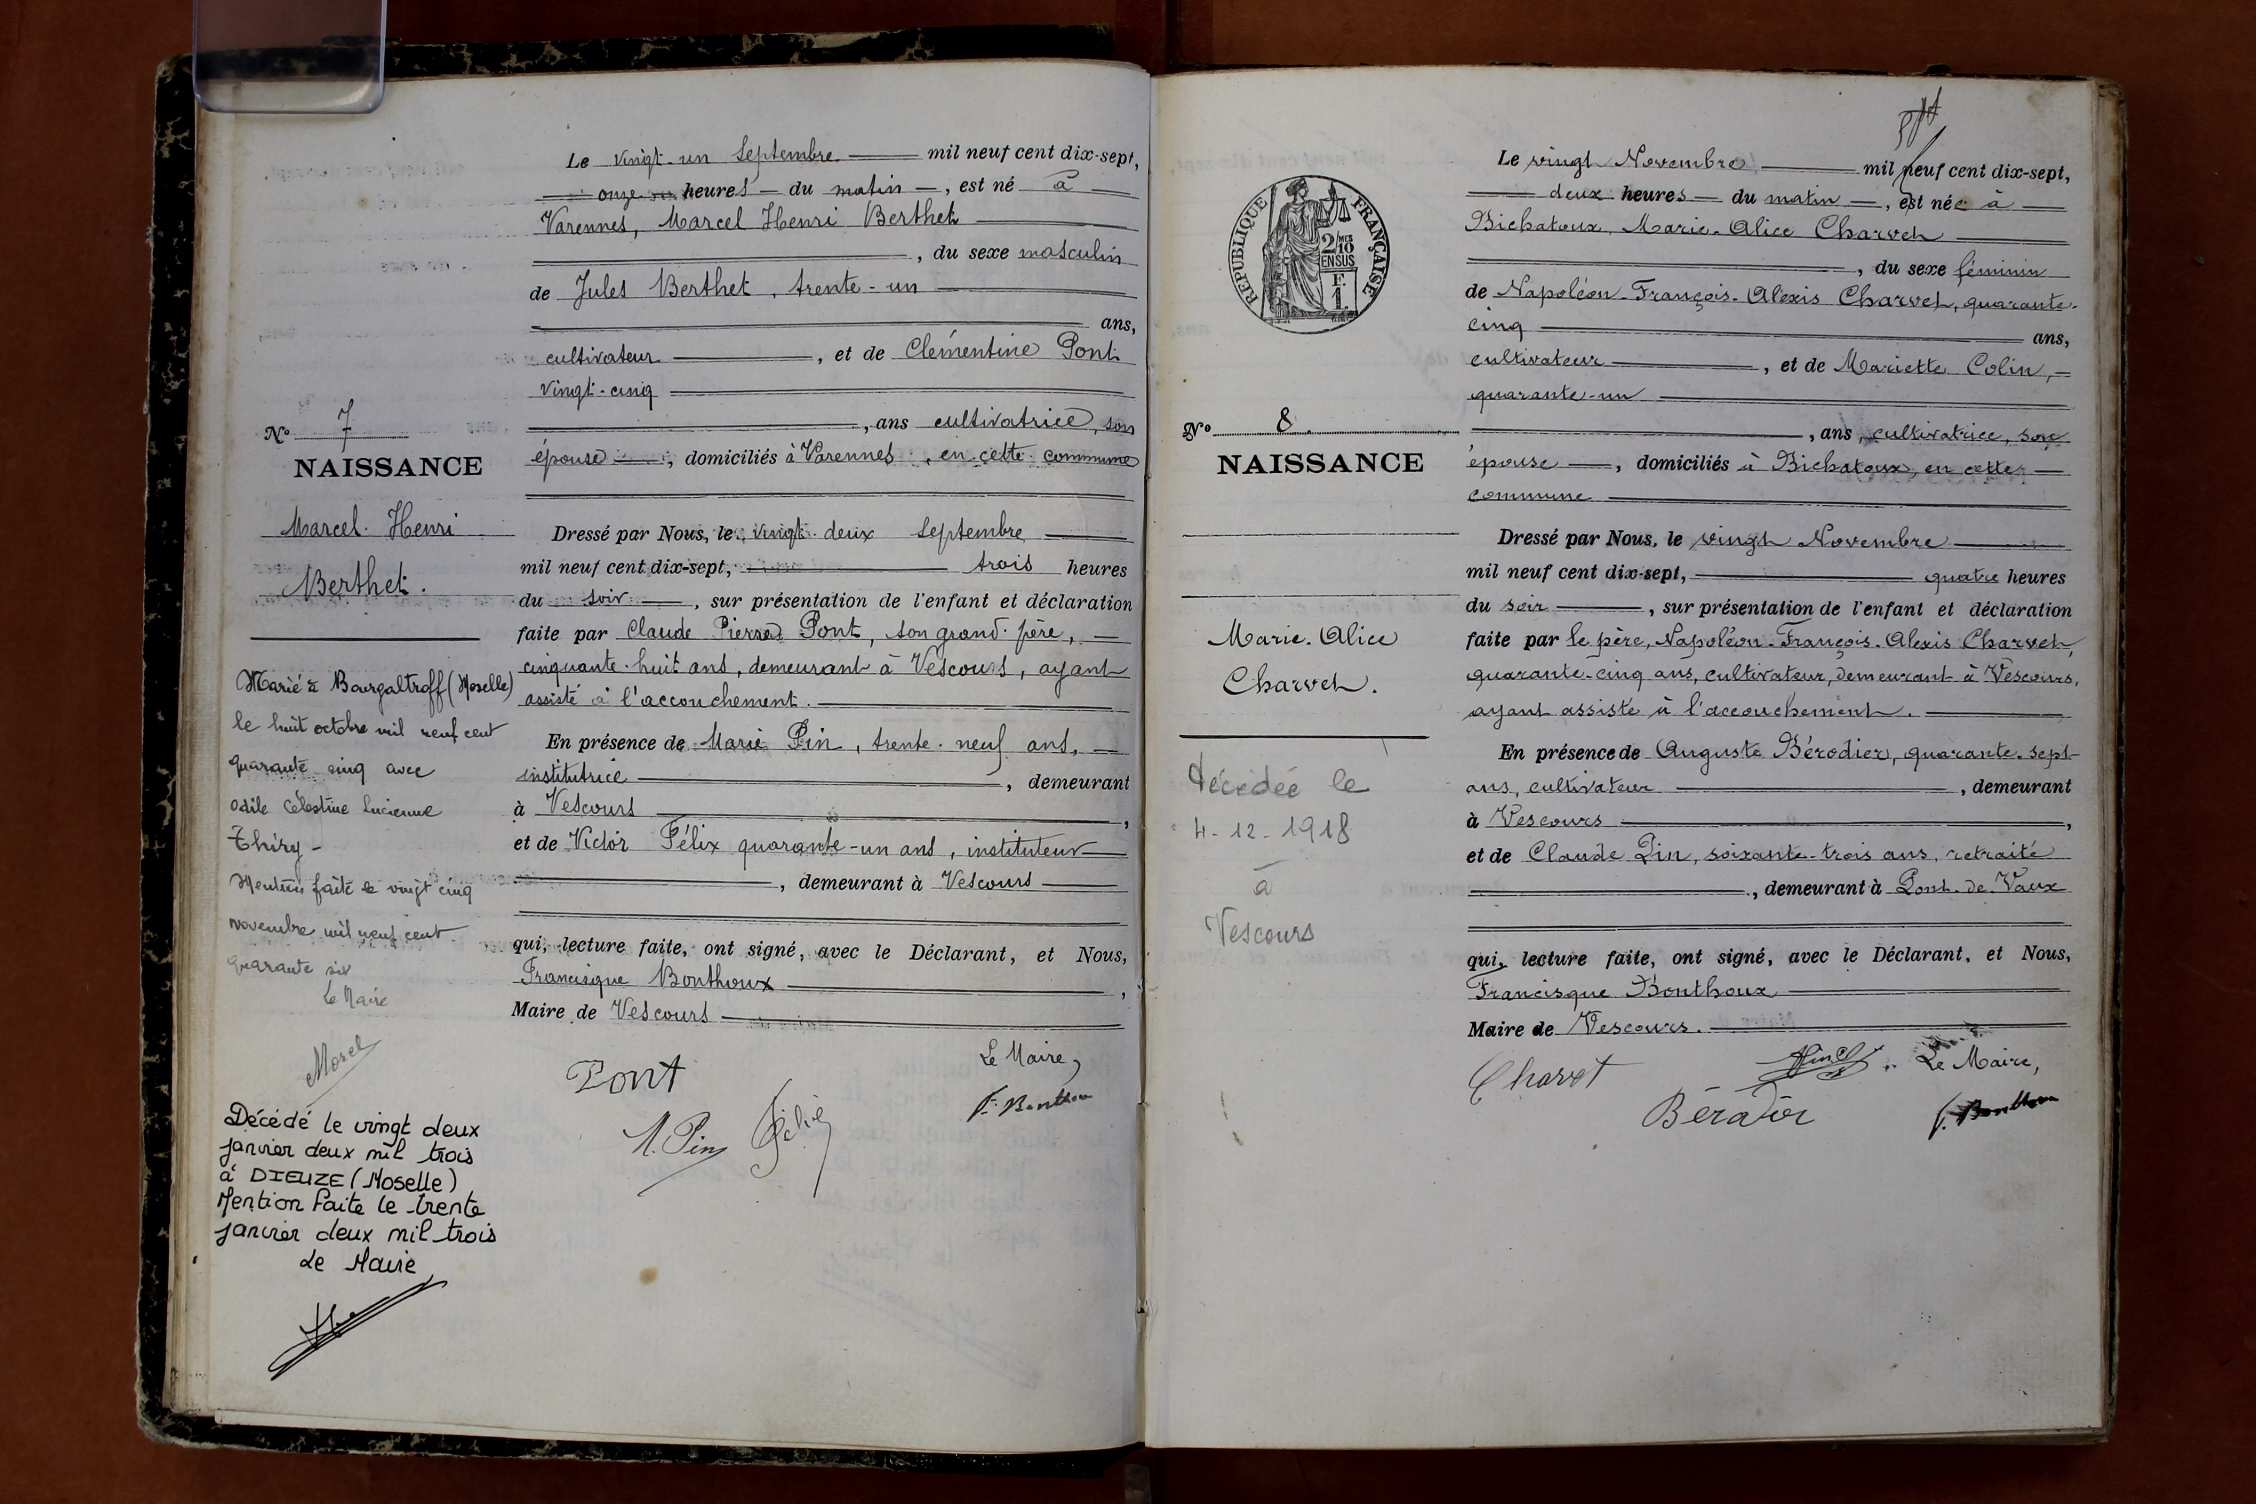 Le vingt-un Septembre mil neuf cent dix-sept,
onze heures du matin, est né à
Varennes, Marcel Henri Berthet
, du sexe masculin
de Jules Berthet, trente-un
ans,
cultivateur, et de Clémentine Pont
vingt-cinq
, ans cultivatrice, son
épouse, domiciliés à Varennes, en cette commune
N° 7
NAISSANCE
Marcel Henri
Berthet.
Dressé par Nous, le vingt deux Septembre
mil neuf cent dix-sept, trois heures
du soir, sur présentation de l'enfant et déclaration
faite par Claude Pierre Pont, son grand-père,
cinquante-huit ans, demeurant à Vescours, ayant
assisté à l'accouchement.
En présence de Marie Pin, trente-neuf ans,
institutrice, demeurant
à Vescours,
et de Victor Félix quarante-un ans, instituteur
, demeurant à Vescours
qui, lecture faite, ont signé, avec le Déclarant, et Nous,
Francisque Bonthoux,
Maire de Vescours
Le Maire,
Pont
M. Pin Félix
F. Bonthoux
Marié à Bourgaltroff (Moselle)
le huit octobre mil neuf cent
quarante cinq avec
Odile Célestine Lucienne
Thiry -
Mention faite le vingt cinq
novembre mil neuf cent
quarante six
Le Maire
Morel
Décédé le vingt deux
janvier deux mil trois
à DIEUZE (Moselle)
Mention faite le trente
janvier deux mil trois
Le Maire
Le vingt Novembre mil neuf cent dix-sept,
deux heures du matin, est née à
Bichatoux, Marie-Alice Charvet
, du sexe féminin
de Napoléon-François-Alexis Charvet, quarante-
cinq ans,
cultivateur, et de Mariette Colin,
quarante-un
, ans, cultivatrice, son
épouse, domiciliés à Bichatoux, en cette
commune
RÉPUBLIQUE FRANÇAISE
2/10
MES
EN SUS
F.
1
N° 8.
NAISSANCE
Marie-Alice
Charvet.
Décédée le
4-12-1918
à
Vescours
Dressé par Nous, le vingt Novembre
mil neuf cent dix-sept, quatre heures
du soir, sur présentation de l'enfant et déclaration
faite par le père, Napoléon-François-Alexis Charvet,
quarante-cinq ans, cultivateur, demeurant à Vescours,
ayant assisté à l'accouchement.
En présence de Auguste Bérodier, quarante-sept
ans, cultivateur, demeurant
à Vescours,
et de Claude Pin, soixante-trois ans, retraité
, demeurant à Pont-de-Vaux
qui, lecture faite, ont signé, avec le Déclarant, et Nous,
Francisque Bonthoux
Maire de Vescours.
Charvet Pin Cl Le Maire,
F. Bonthoux